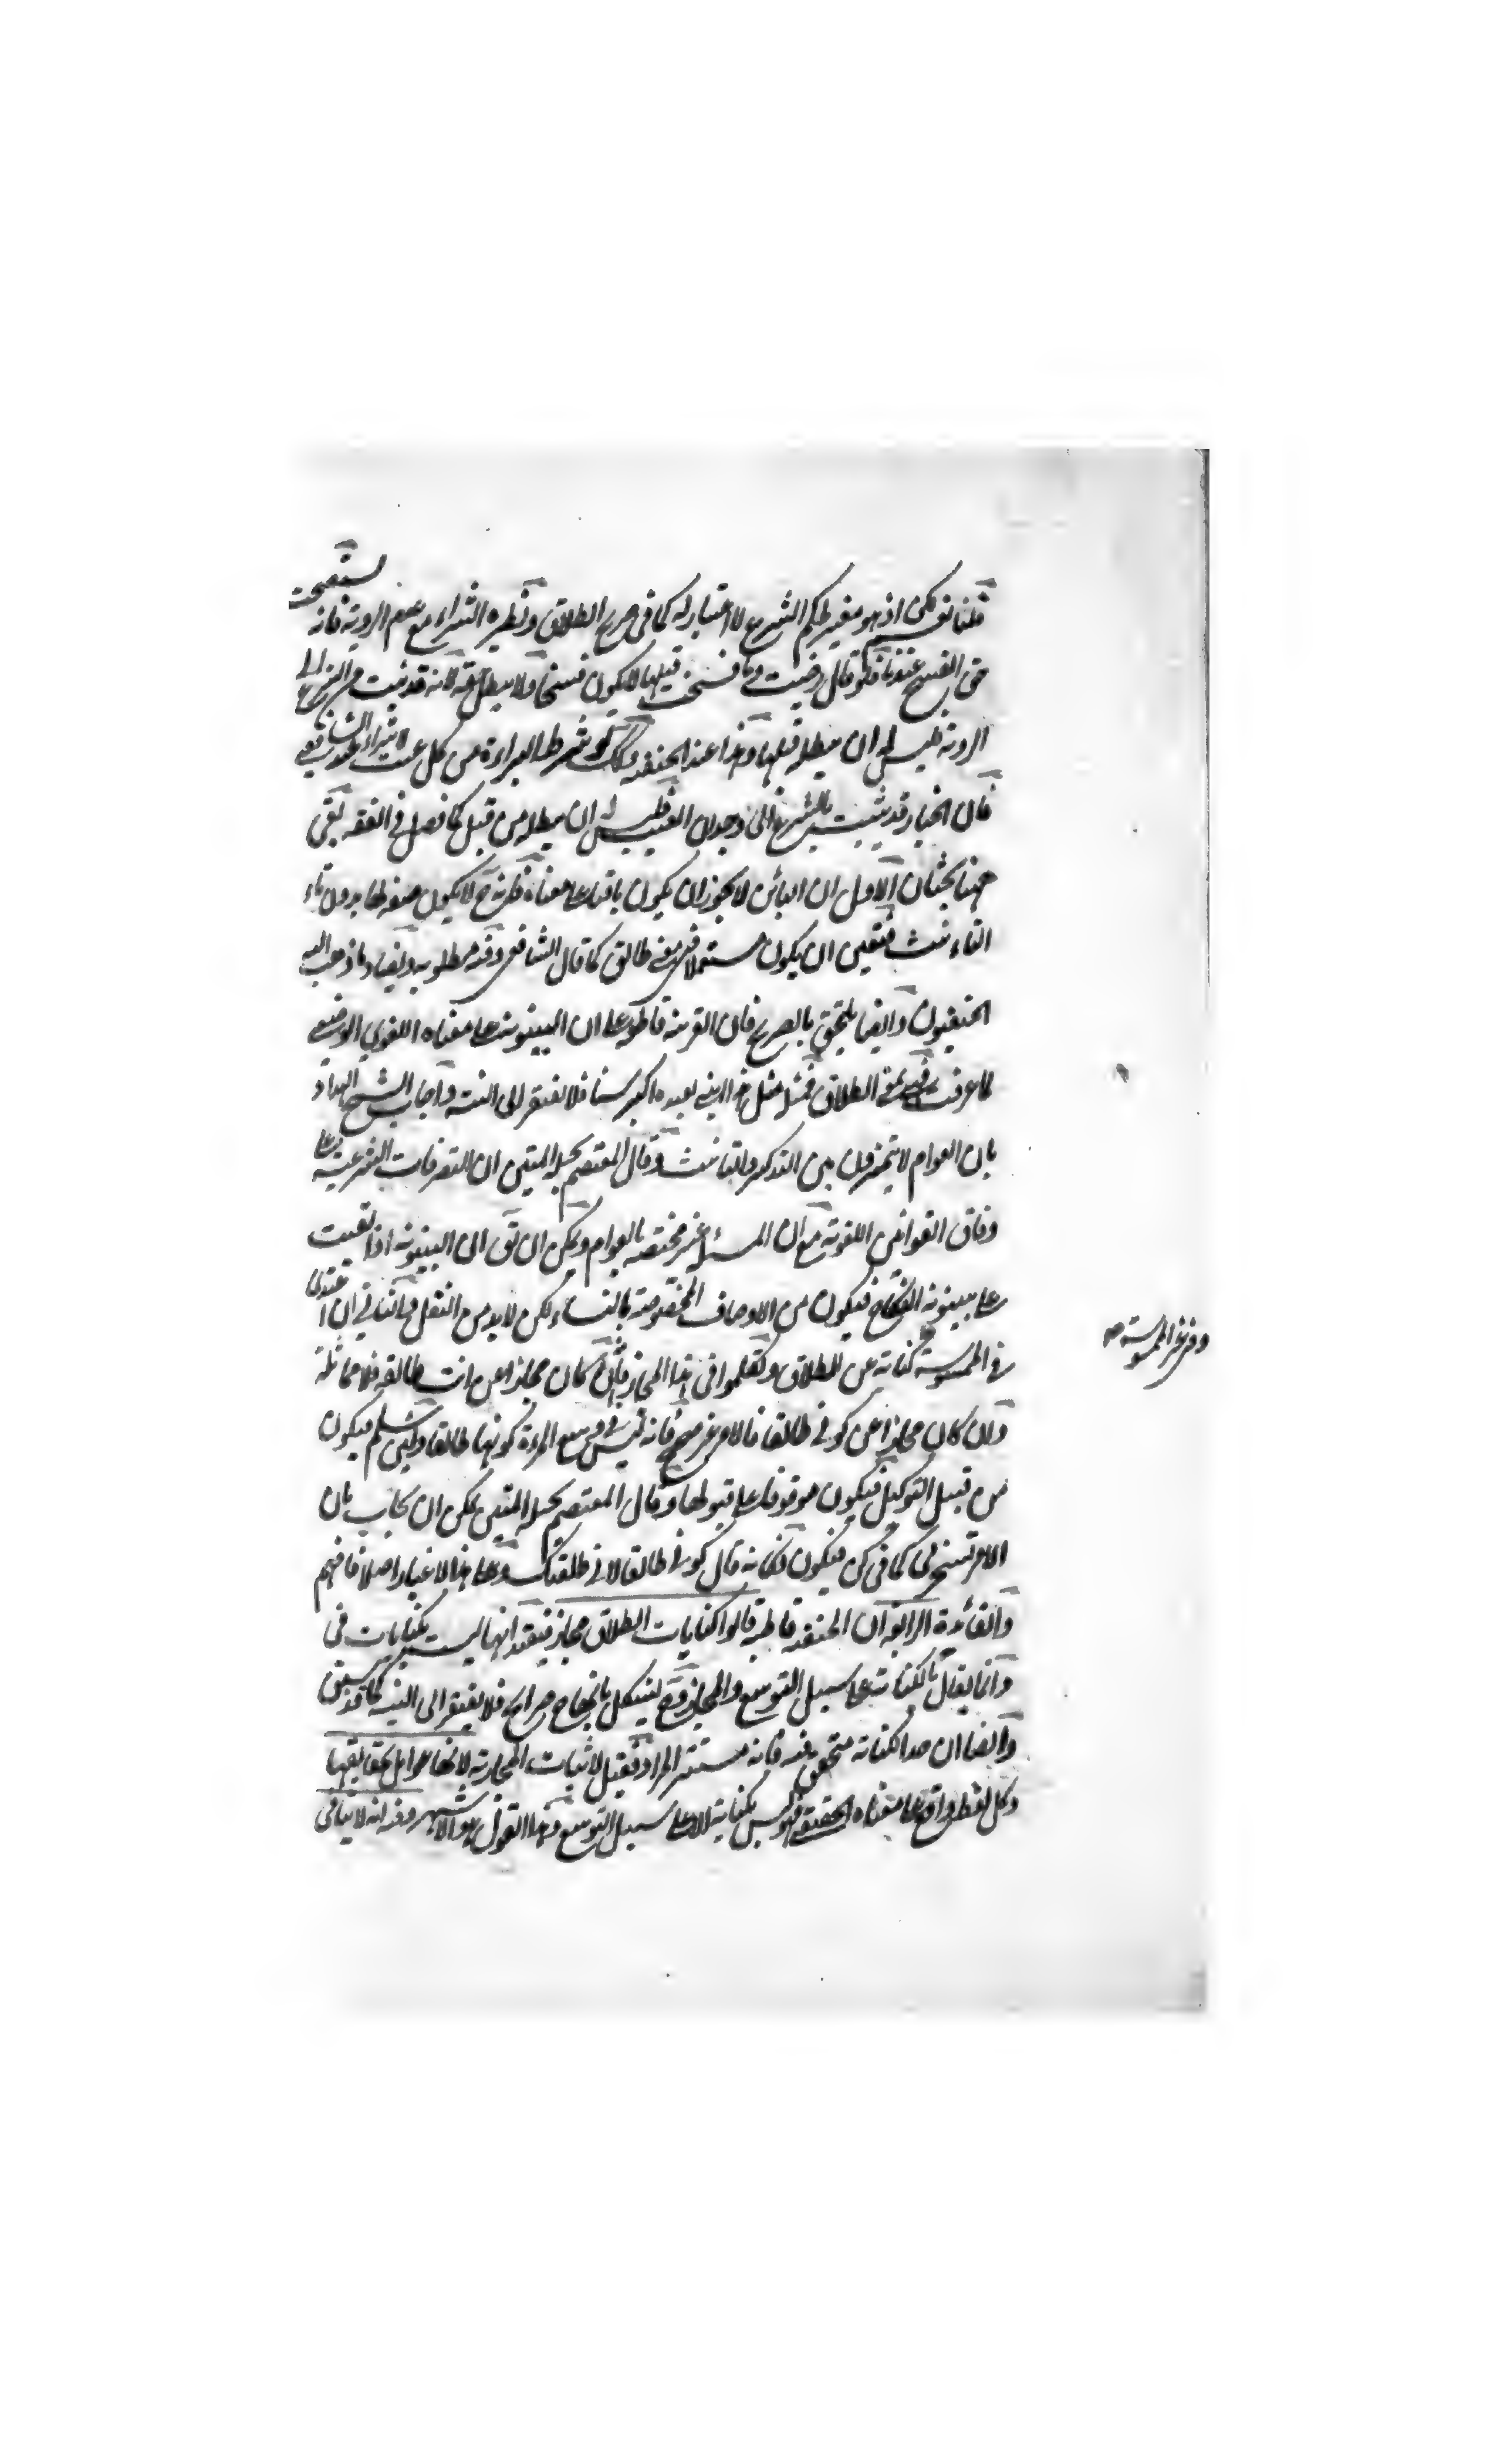 قلنا نعم لكن اذ هو مغير لحكم الشرع لا اعتبار له كما في صريح الطلاق ونظيره الشراء مع عدم الروية فانه يستحق
حق الفسخ عندنا فلو قال رضيت او فسخت قبلها لا يكون فسخا ولا يبطل حقه لانه قد ثبت من الشرع الى
الروية فليس له ان يبطله قبلها وهذا عند الحنفية شرط البراءة من كل عيب الشراء عند الشافعي
فان الخيار قد ثبت بالشرع الى وجدان العيب فليس له ان يبطله من قبل كما فصل في الفقه بقي
ههنا بحثان الاول ان البائن لا يجوز ان يكون باقيا على معناه فانه ح لا يكون صفة لها بدون تاء
التانيث فتعين ان يكون مستعملا في معنى طالق كما قال الشافعي وفيه مطلوبه ويضاد ما ذهب اليه
الحنفيون وايضا يلتحق بالصريح فان القرينة قاطعة على ان البينونة على معناه اللغوي الوضعي
لما عرفت بمعنى الطلاق فمثله مثل هذا ابني لعبده اكبر سنا فلا يفتقر الى النية واجاب الشيخ الهداد
بان العوام لا يتميزون بين التذكير والتانيث وقال المعتصم بحبله المتين ان التصرفات الشرعية على
وفاق القوانين اللغوية مع ان المسئلة غير مختصة بالعوام ويمكن ان يق ان البينونة اذا بقيت
على بينونة النكاح فيكون من الاوصاف المخصوصة بالنساء لكن لا بد من النقل والثاني ان اعتدي
في الممسوسة كناية عن الطلاق وتكلموا في هذا المجاز بانه ان كان مجازا عن انت طالق فلا مماثلة
وان كان مجازا عن كوني طالقا فالامر غير صحيح فانه ليس في وسع المرءة كونها طالقا ولئن سلم فيكون
من قبيل التوكيل فيكون موقوفا على قبولها وقال المعتصم بحبله المتين يمكن ان يجاب بان
الامر تسخيري كما في كن فيكون فكانه قال كوني طالقا لاني طلقتك وعلى هذا لا غبار اصلا فافهم
والفائدة الرابعة ان الحنفية قاطبة قالوا كنايات الطلاق مجاز فيفيد انها ليست بكنايات في
وانما يقال بالكناية على سبيل التوسع والمجاز وح يشكل بانها ح صرايح فلا يفتقر الى النية كما قد سبق
وايضا ان حد الكناية متحقق فيه فانه مستتر المراد فقيل لاثبات المجازية لانها عوامل بحقايقها
وكل لفظ واقع على معناه الحقيقي فهو ليس بكناية الا على سبيل التوسع وهذا القول هو الاشهر وفيه انه لا ينافي
وفي غير الممسوسة